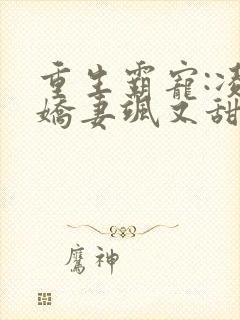 重生霸寵:凌
嬌妻颯又甜
鷹神